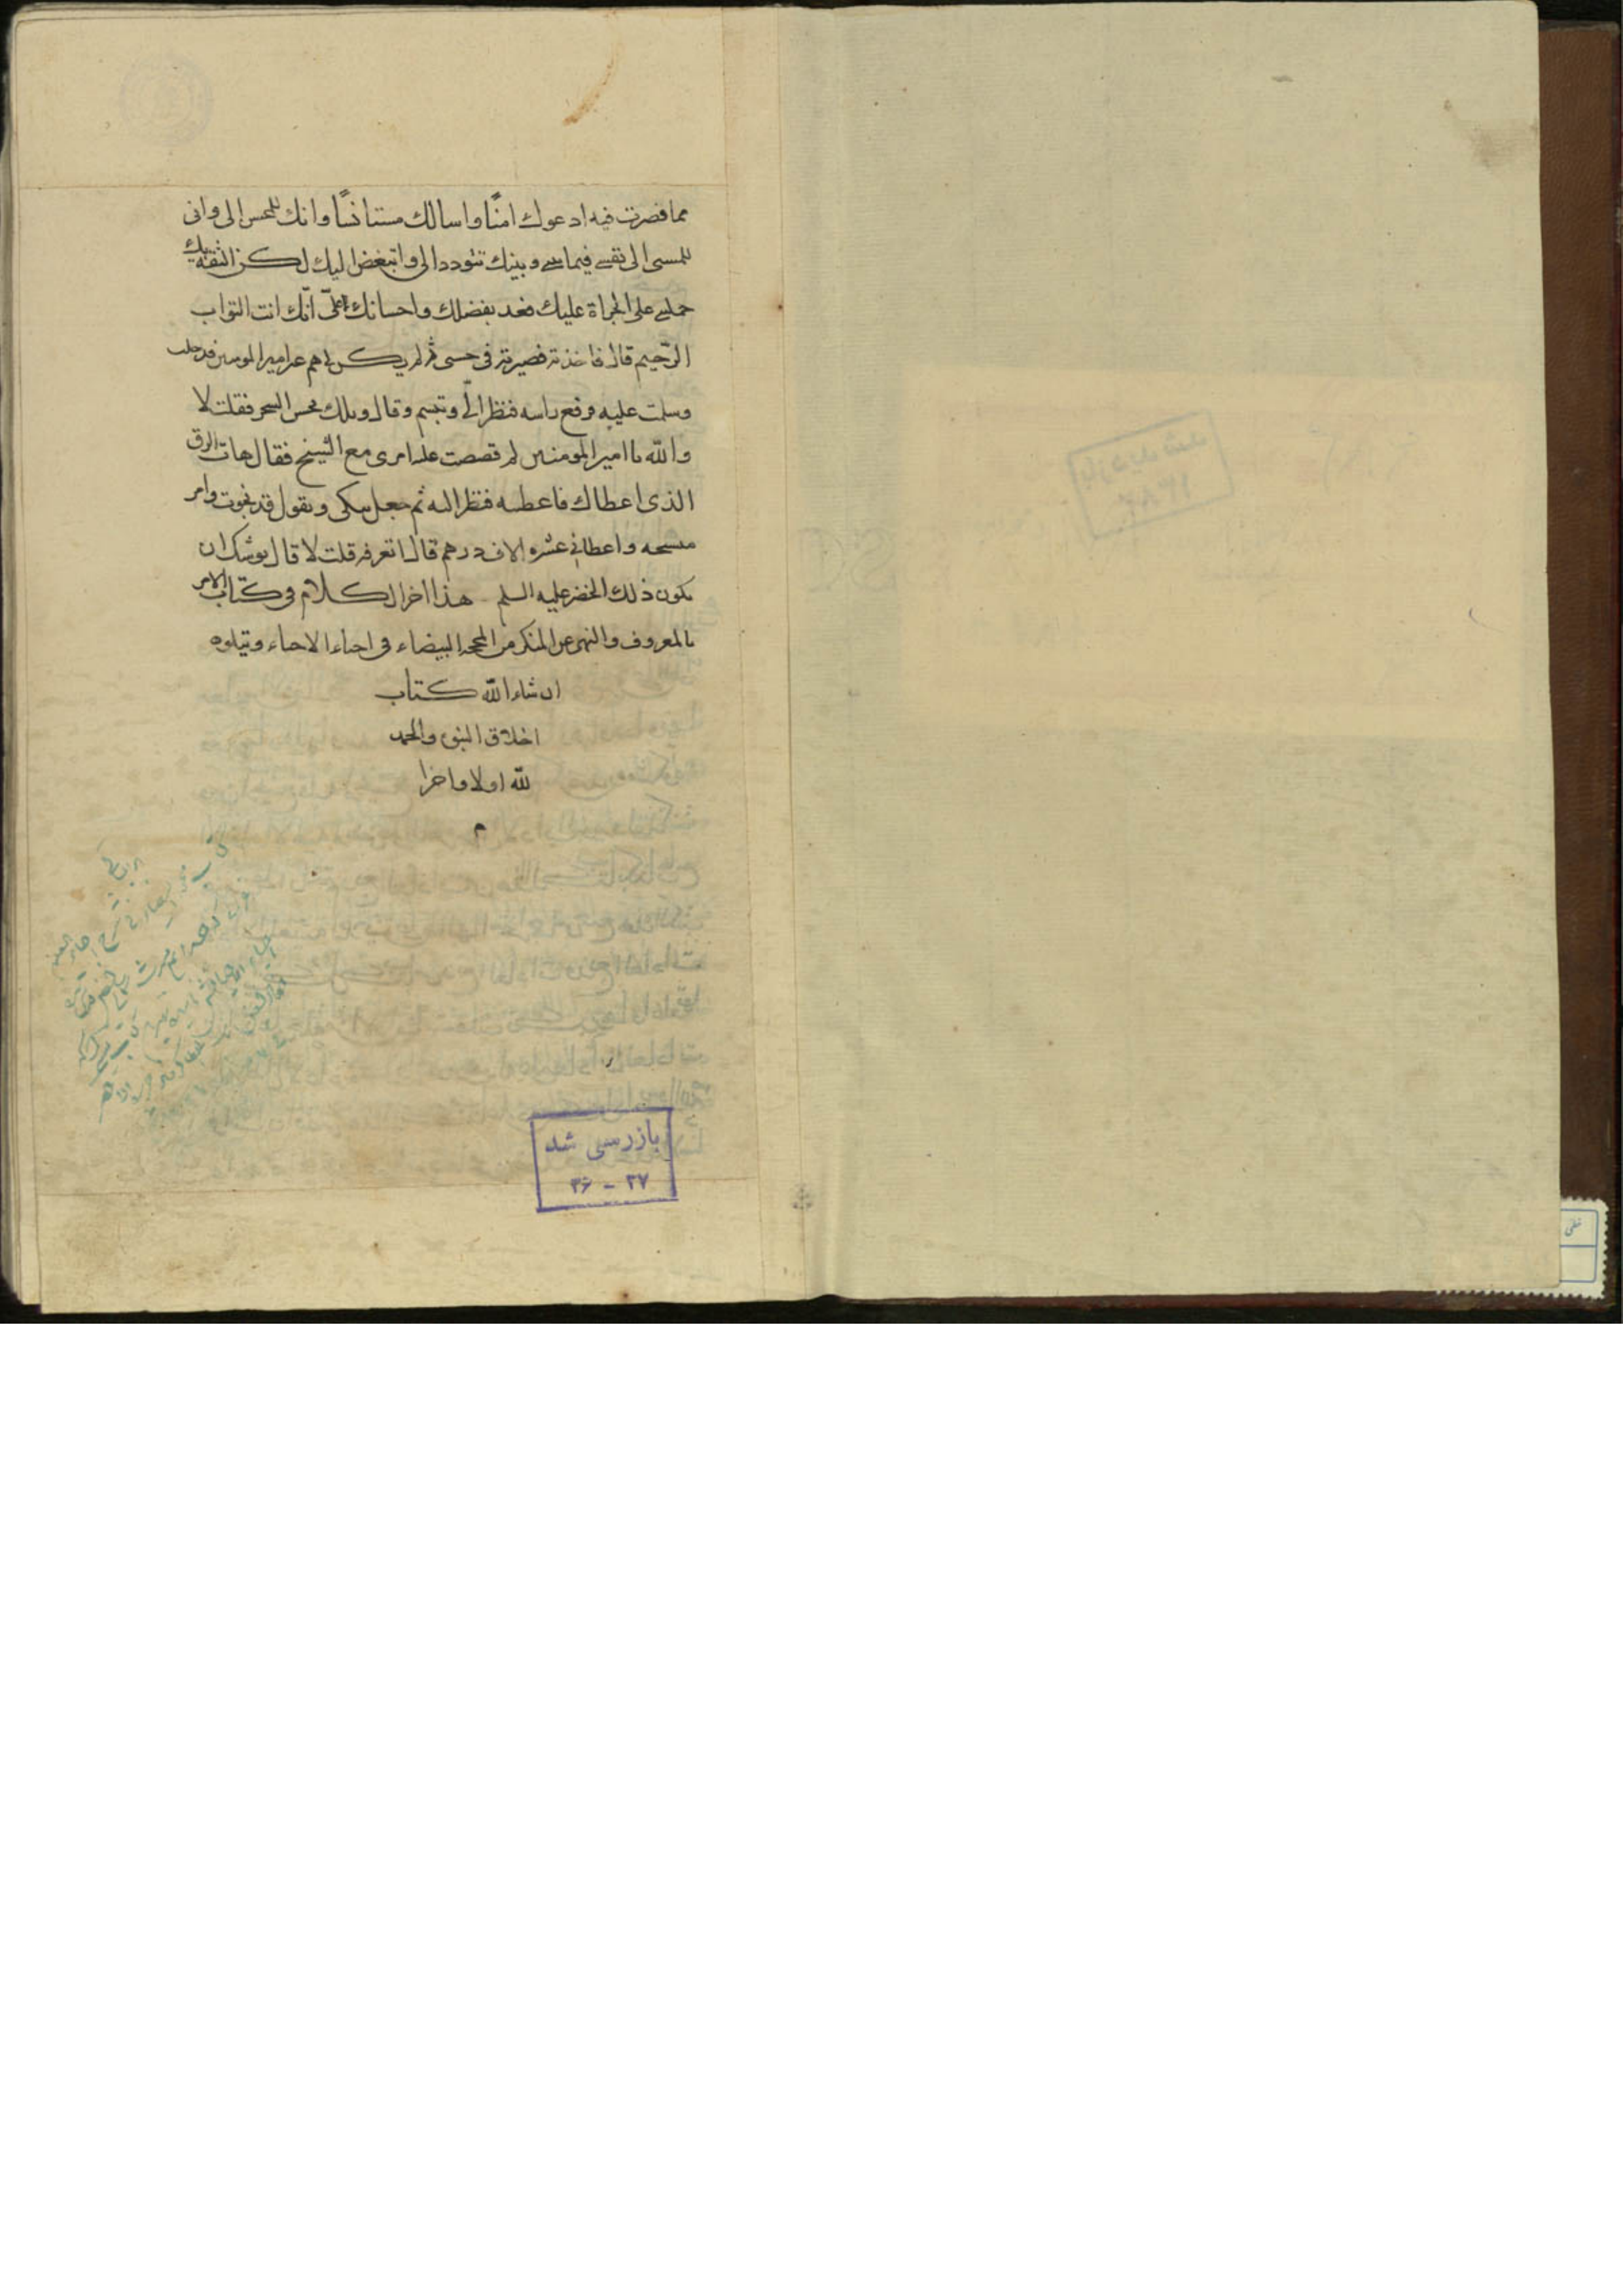 مما قصرت فيه ادعوك امنًا واسالك مستانسًا وانك للمحسن الى وانى
للمسى الى نفسى فيما بينى وبينك تتودد الى واتبغض اليك لكن الثقة بك
حملنى على الجراة عليك فعد بفضلك واحسانك علىّ انّك انت التواب
الرّحيم قال فاخذته فصيرته فى جيبى ثم لم يكن لى هم غير امير المومنين فدخلت
وسلمت عليه فرفع راسه فنظر الىّ وتبسم وقال ويلك تحسن السحر فقلت لا
والله يا امير المومنين ثم قصصت عليه امرى مع الشيخ فقال هات الرق
الذى اعطاك فاعطيته فنظر اليه ثم جعل يبكى ويقول قد نجوت وامر
بنسخه واعطانى عشرة الاف درهم ثم قال اتعرفه قلت لا قال يوشك ان
يكون ذلك الخضر عليه السلم هذا اخر الكلام فى كتاب الامر
بالمعروف والنهى عن المنكر من المحجة البيضاء فى احياء الاحياء ويتلوه
ان شاء الله كتاب
اخلاق النبوة والحمد
لله اولا واخرا
م
بازرسی شد
۳۶ - ۳۷